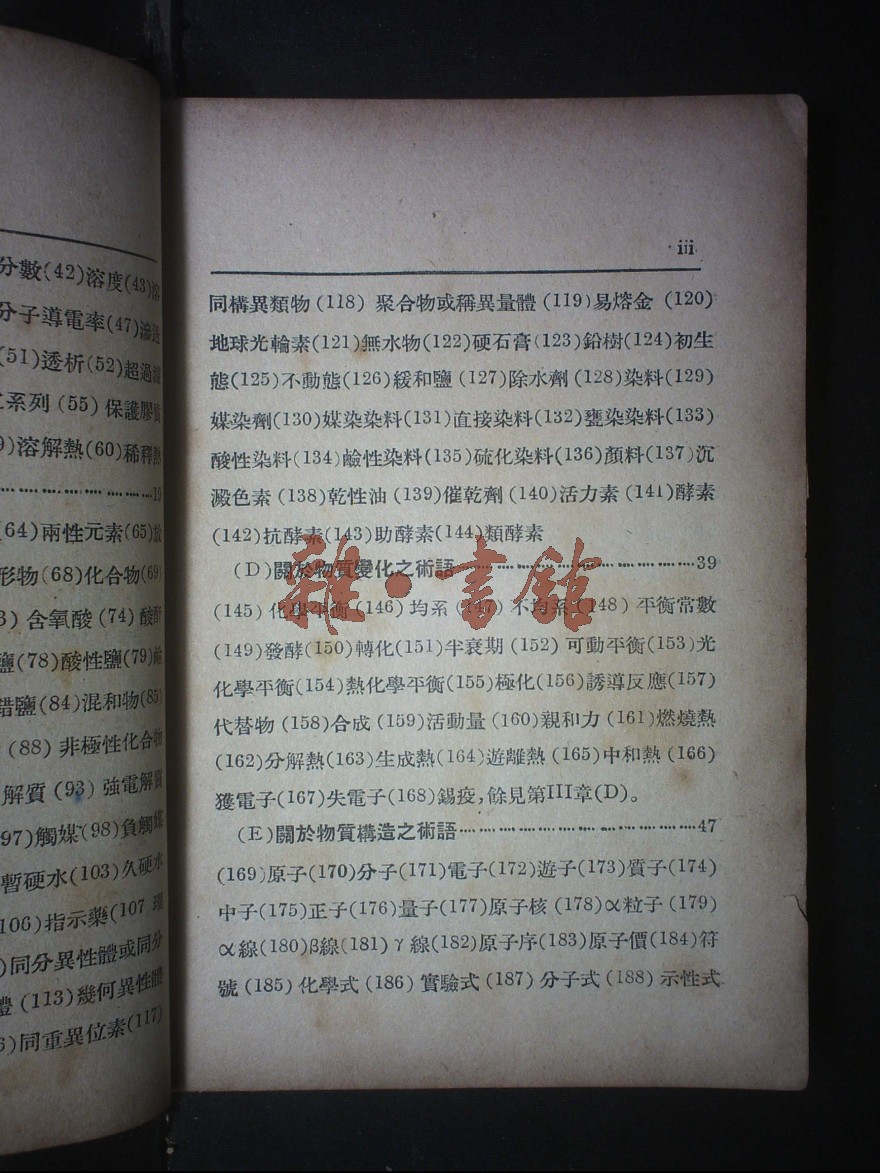 分數(42)溶度(43)溶
分子導電率(47)滲透
(51)透析(52)超過濾
系列 (55) 保護膠質
)溶解熱(60)稀釋熱
19
(64)兩性元素(65)放
形物(68)化合物(69)
3) 含氧酸 (74) 酸酐
鹽(78)酸性鹽(79)鹼
錯鹽(84)混和物(85)
(88) 非極性化合物
解質 (93) 強電解質
97)觸媒(98)負觸媒
暫硬水(103)久硬水
106) 指示藥(107 理
)同分異性體或同分
體 (113)幾何異性體
6)同重異位素(117)
iii
同構異類物 (118) 聚合物或稱異量體 (119)易熔金 (120)
地球光輪素(121)無水物(122)硬石膏(123)鉛樹(124)初生
態(125)不動態(126)緩和鹽 (127)除水劑 (128)染料(129)
媒染劑(130)媒染染料(131)直接染料(132)甕染染料(133)
酸性染料(134)鹼性染料(135)硫化染料(136)顏料(137)沉
澱色素 (138)乾性油 (139)催乾劑 (140)活力素 (141)酵素
(142)抗酵素(143)助酵素(144)類酵素
(D)關於物質變化之術語……………………………39
(145) 化學平衡 (146) 均系 (147) 不均系 (148) 平衡常數
(149)發酵(150)轉化(151)半衰期 (152) 可動平衡(153)光
化學平衡(154)熱化學平衡(155)極化(156)誘導反應(157)
代替物 (158)合成 (159)活動量 (160)親和力 (161)燃燒熱
(162)分解熱(163)生成熱(164)遊離熱 (165)中和熱 (166)
獲電子(167)失電子(168)錫疫,餘見第III章(D)。
(E)關於物質構造之術語……………………………47
(169)原子(170)分子(171)電子(172)遊子(173)質子(174)
中子(175)正子(176)量子(177)原子核 (178)α粒子 (179)
α線(180)β線(181)γ線(182)原子序(183)原子價(184)符
號 (185) 化學式 (186) 實驗式 (187) 分子式 (188) 示性式
雜·書館